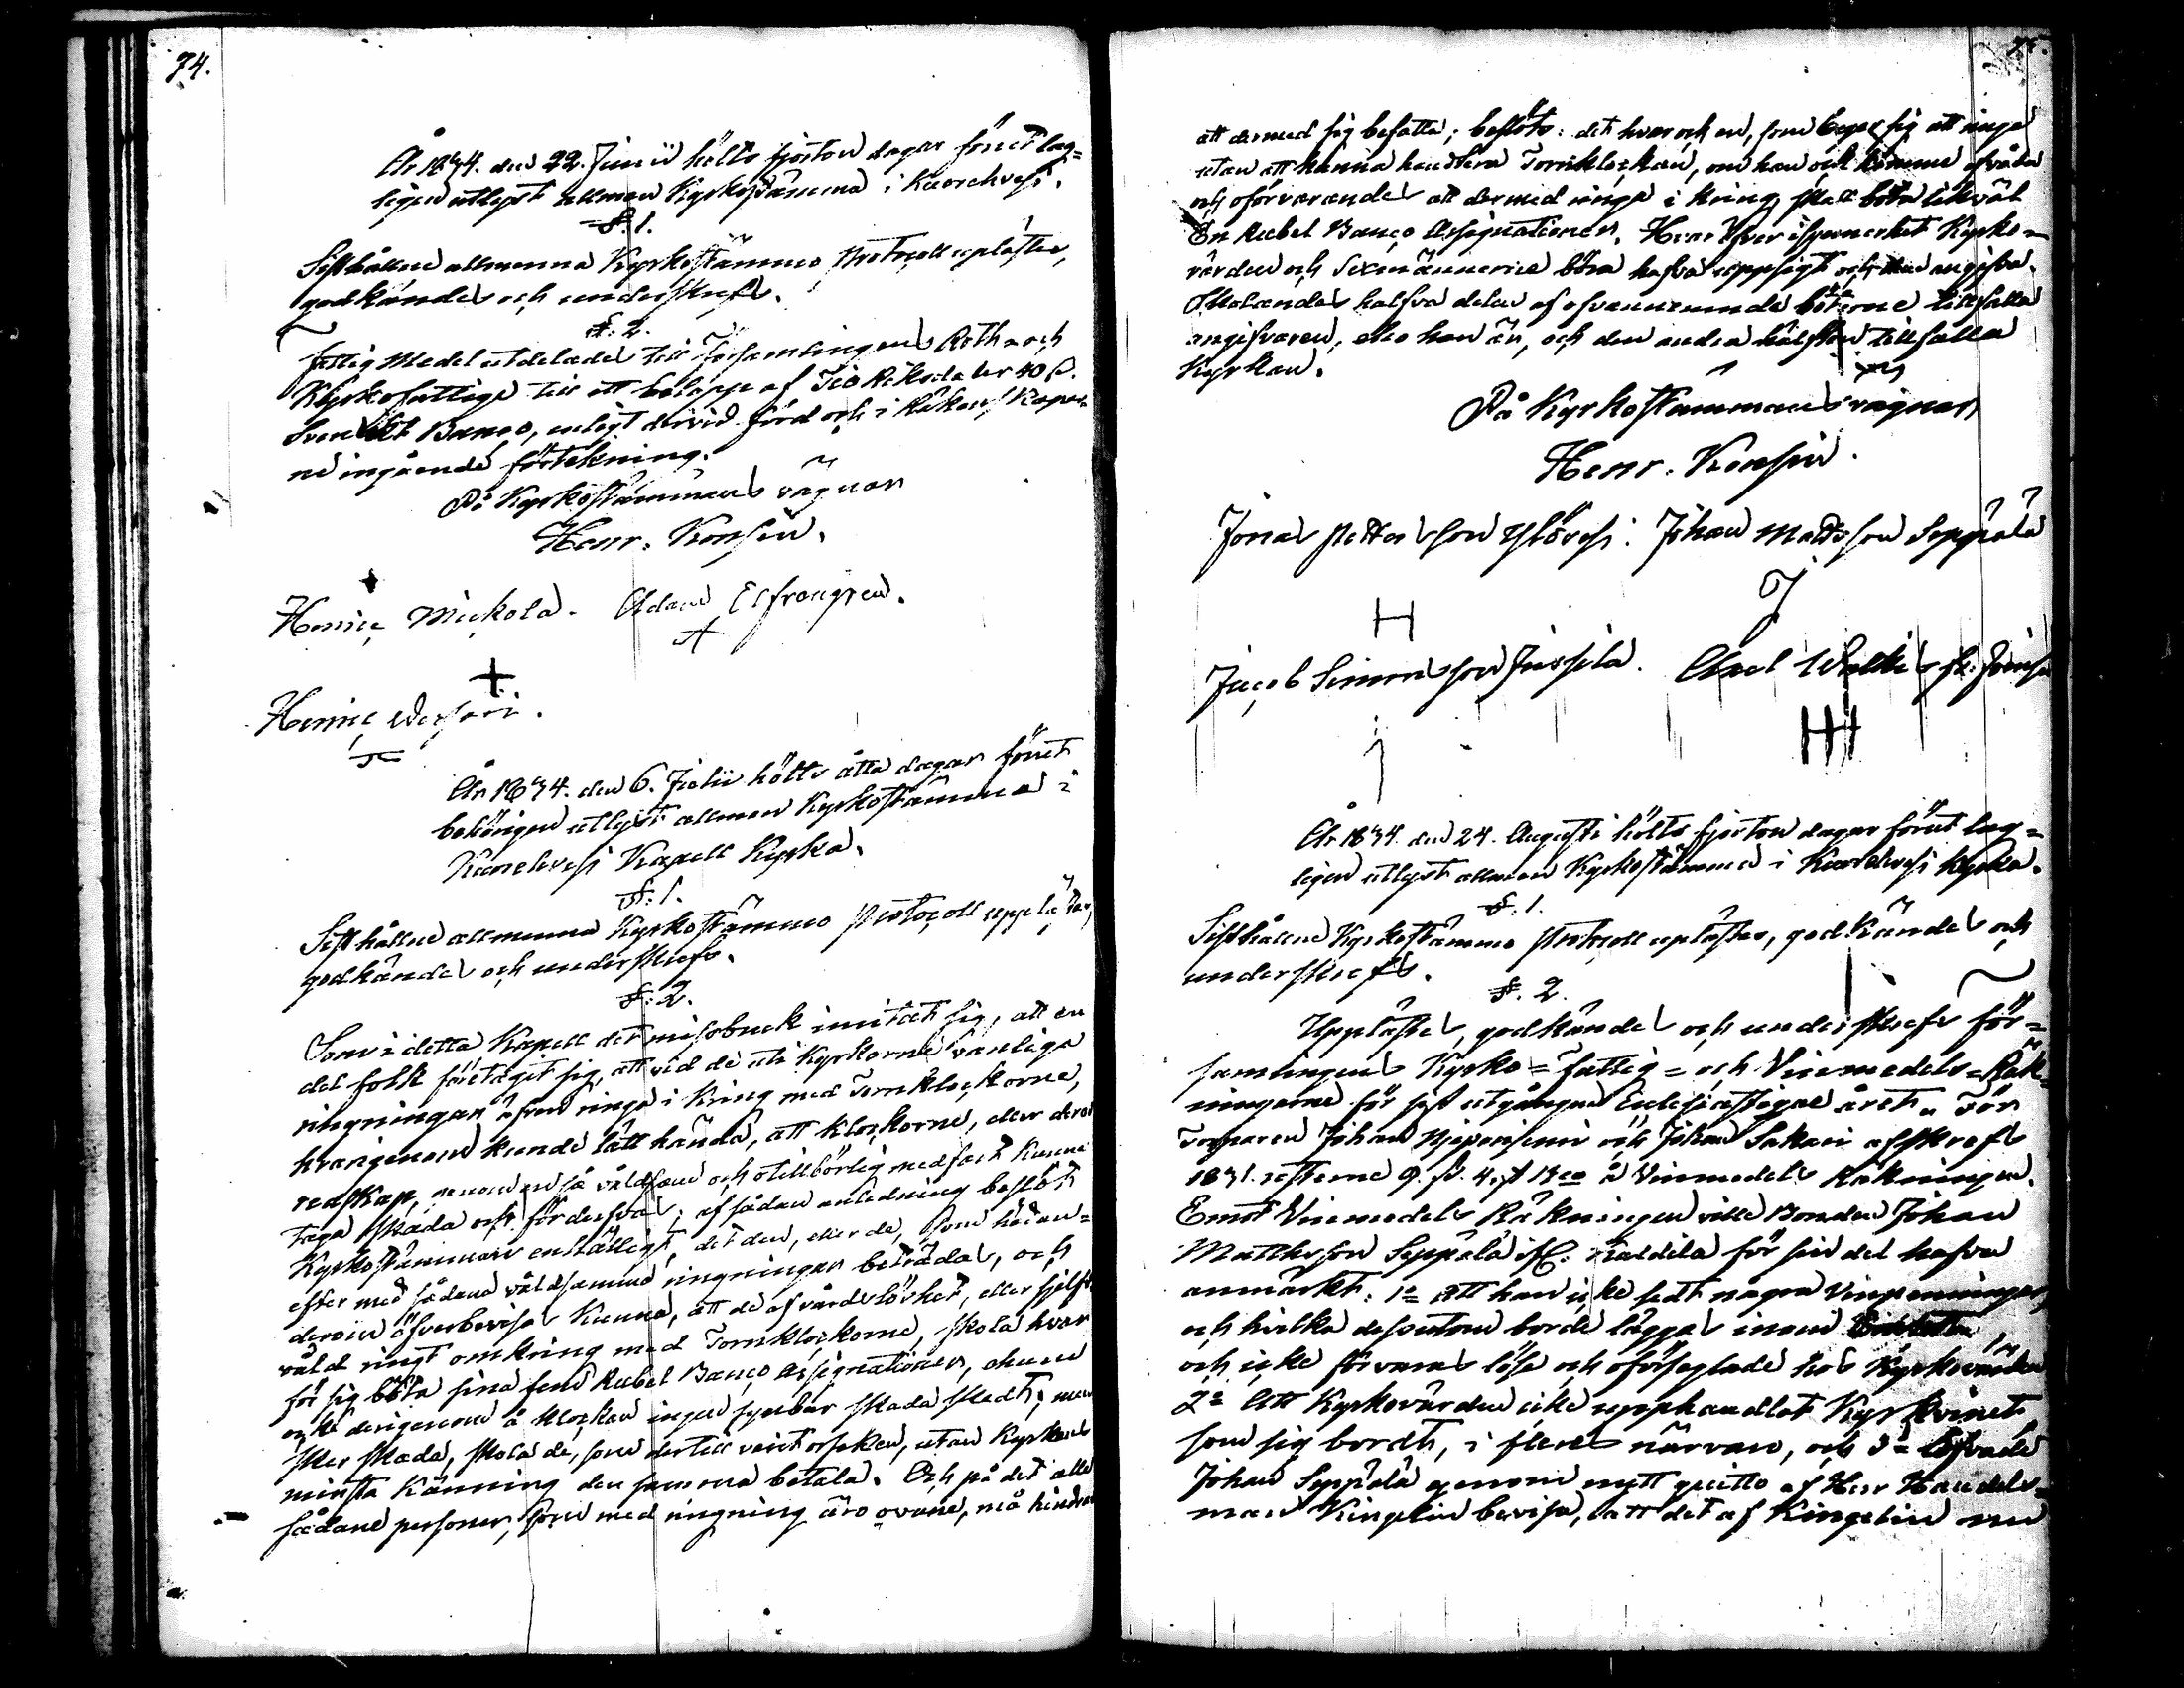 74.
År 1834. den 22. Junii hölts fjorton dagar förut lag=
ligen utlyst allmän Kyrkostämma i Kuorehvesi.
§. 1.
Sisthållne allmänna Kyrkostämmo Protocoll uplästes,
godkändes och underskrefs.
§. 2.
Fattig Medel utdelades till Församlingens Roth- och
Kyrkofattige till ett belopp af Tio Riksdaler 40 s.
Svenskt Banco, enligt dervid förd och i Räkensk Kaper-
ne ingående förtekning.
På Kyrkostämmans vägnar
Henr. Konsin.
Henric Mickola. Adam Elfvengren.
Henric
År 1834. den 6. Julii hölts åtta dagar förut
behörigen utlyst allmän Kyrkostämma i
Kuorehvesi Kapell Kyrka.
§. 1.
Sisthållne allmänna Kyrkostämmo Protocoll upplästes,
godkändes och underskrefs.
§. 2.
Som i detta Kapell det missbruk insritat sig, att en
del folk företagit sig, att vid de uti Kyrkorne vanliga
ringningar äfven ringa i kring med Tornklockorne,
hvarigenom kunde lätt hända, att klockorne, eller deras
redskap, genom en så våldsam och otillbörlig medfart kunne
taga skada och förderfvas; af sådan anledning beslöt
Kyrkostämman enhälligt, det den, eller de, som hädan=
efter med sådane våldsamme ringningar beträdas, och
derom öfverbevisas kunna, att de af vårdslöshet, eller sjelfs
våld ringt omkring med Tornklockorne, skola hvar
för sig böta sina fem Rubel Banco Assignationer, ehuru
ock derigenom å klockan ingen synbar skada skedt; men
sker skada, skola de, som dertill varit orsaken, utan Kyrkans
minsta känning den samma betala. Och på det alla
sådane personer, som med ringning äro ovane, må hindras
75.
att dermed sig befatta; beslöts: det hvar och en, som beger sig att ringa
utan att kunna handtera Tornklockan, om han ock komme af våda
och oförvarandes att dermed ringa i kring, skall böta likväl
En Rubel Banco Assignationer. Häröfver isynnerhet Kyrko=
vården och Sexmännerne böra hafva uppsigt och den angifva.
Skolande halfva delen af ofvannemnde böterne tillfalla
angifvaren, eho han är, och den andra hälften tillfalla
Kyrkan.
På Kyrkostämmans vägnar
Henr. Konsin.
Jonas Pettersson Ylövesi. Johan Mattsson Seppälä
Jacob Simonsson Jussila. Axel
År 1834. den 24. Augusti hölts fjorton dagar förut lag=
ligen utlyst allmän Kyrkostämma i Kuorehvesi Kyrka.
§. 1.
Sisthållne Kyrkostämmo Protocoll uplästes, godkändes och
underskrefs.
§. 2.
Upplästes, godkändes och underskrefs för=
samlingens Kyrko= Fattig= och Vinmedels=Räk=
ningarne för sist utgångne Ecclesiastique året. För
Torparen Johan och Johan Sakari afskrefs
1831. resterne 9. s. 4. st Bco å Vinmedels Räkningen.
Emot Vinmedels Räkningen ville Bonden Johan
Matthsson Seppälä för sin del hafva
anmärkt: 1o att han icke sedt några Vinpenningar,
och hvilka dessutom borde läggas inom
och icke förvaras löse och oförseglade hos Kyrkovärden
2o Att Kyrkovärden icke upphandlat Kyrkvinet
som sig bordt, i fleres närvaro, och 3o lofvade
Johan Seppälä genom nytt qvitto af Herr Handels=
man Kingelin bevisa, att det af Kingelin